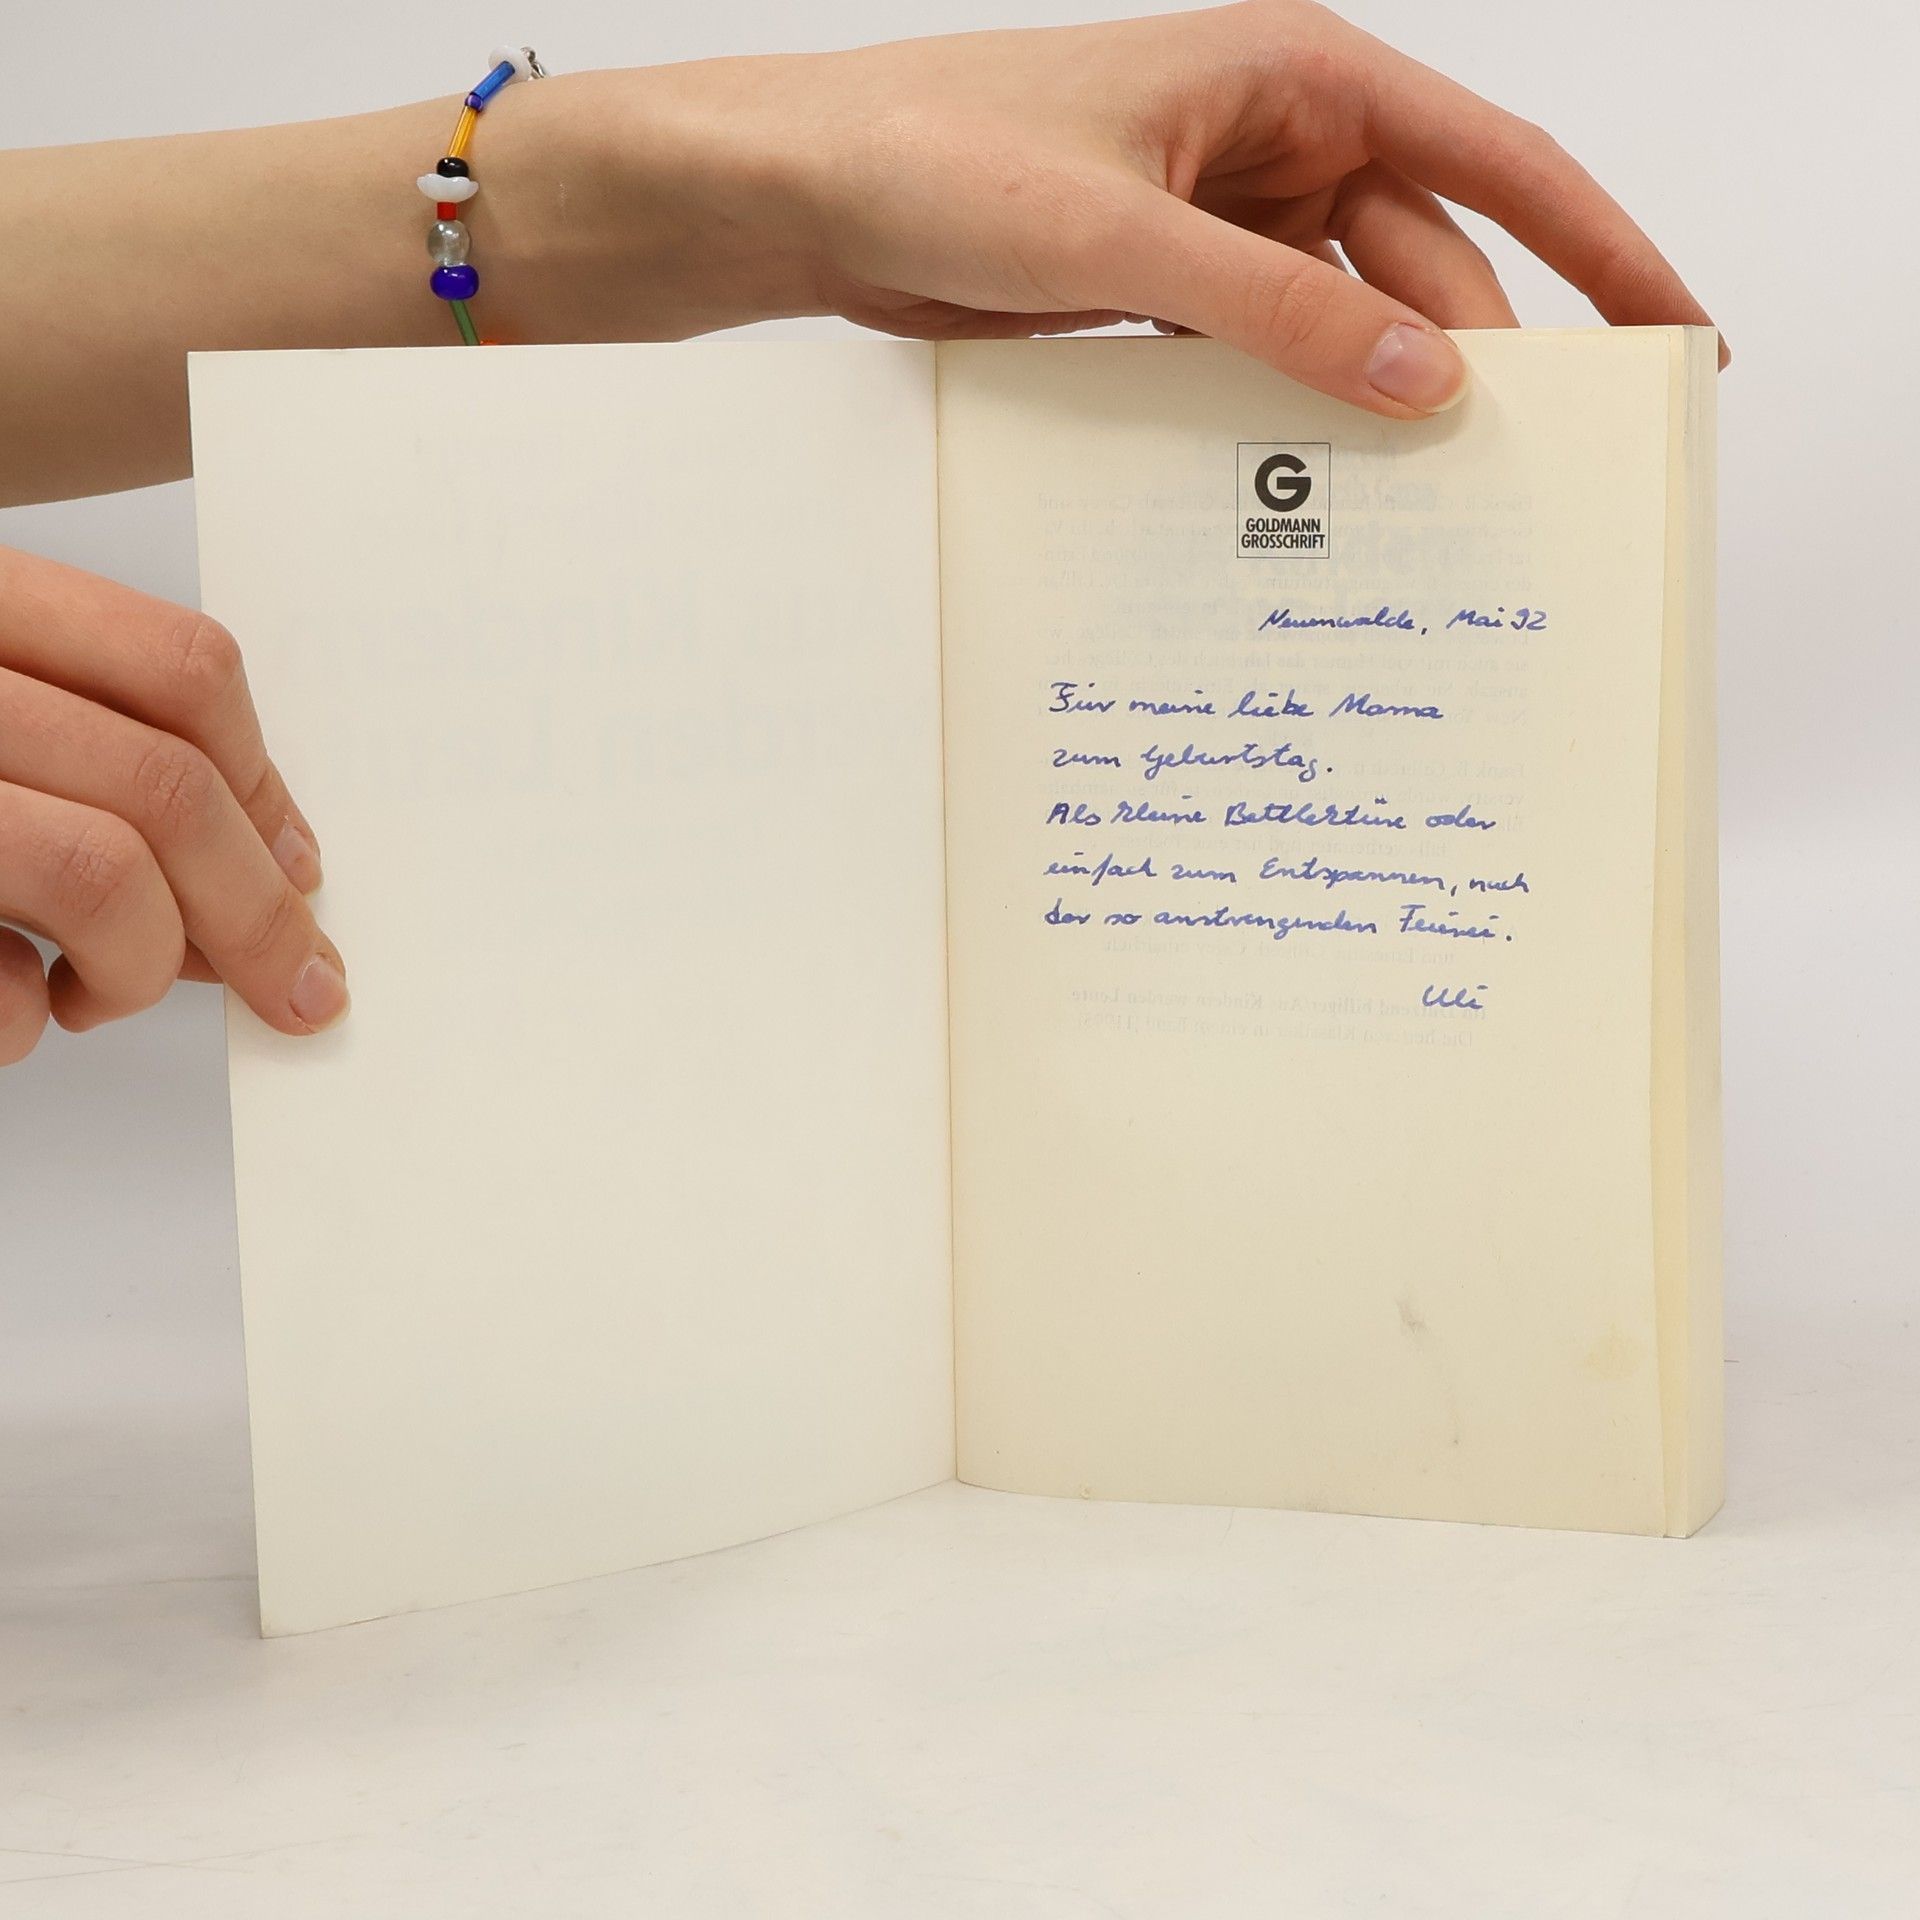 G
GOLDMANN
GROSSCHRIFT
Neuenwalde, Mai 92
Für meine liebe Mama
zum Geburtstag.
Als kleine Bettlektüre oder
einfach zum Entspannen, nach
der so anstrengenden Feierei.
Uli